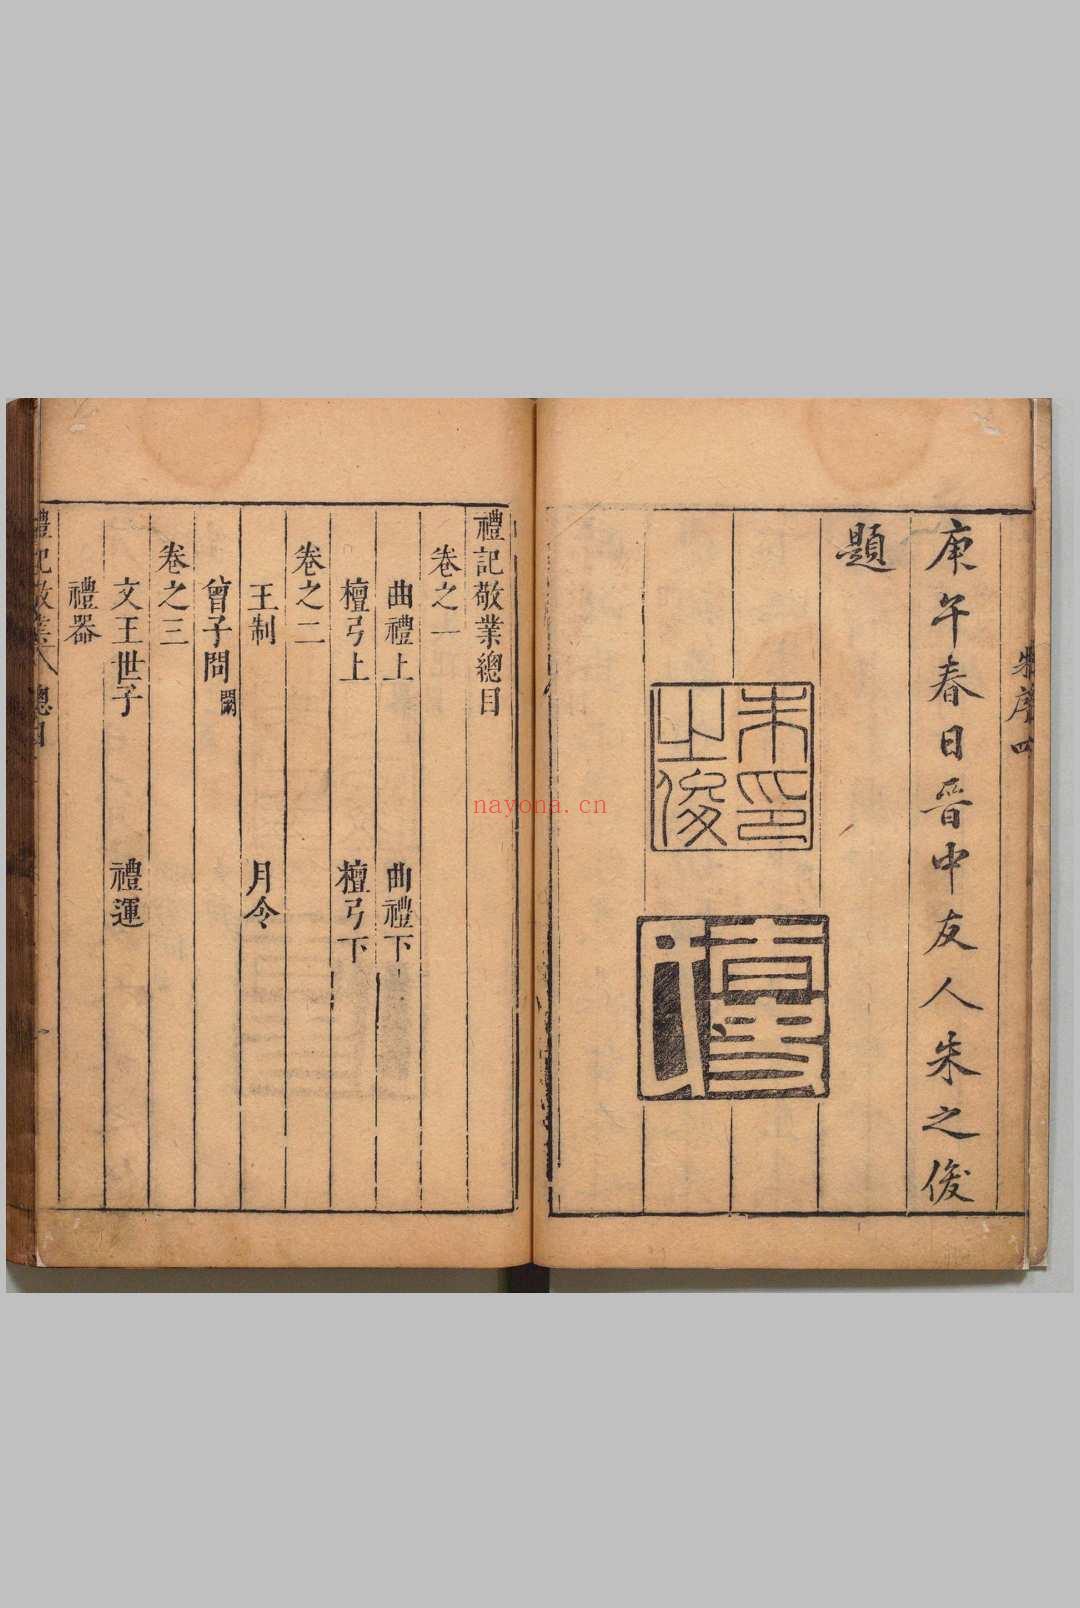 朱序四
庚午春日晉中友人朱之俊
題
朱印之俊
禮記敬業總目
卷之一
曲禮上 曲禮下
檀弓上 檀弓下
卷之二
王制 月令
曾子問
卷之三
文王世子 禮運
禮器
禮記敬業 總目
nayona.cn